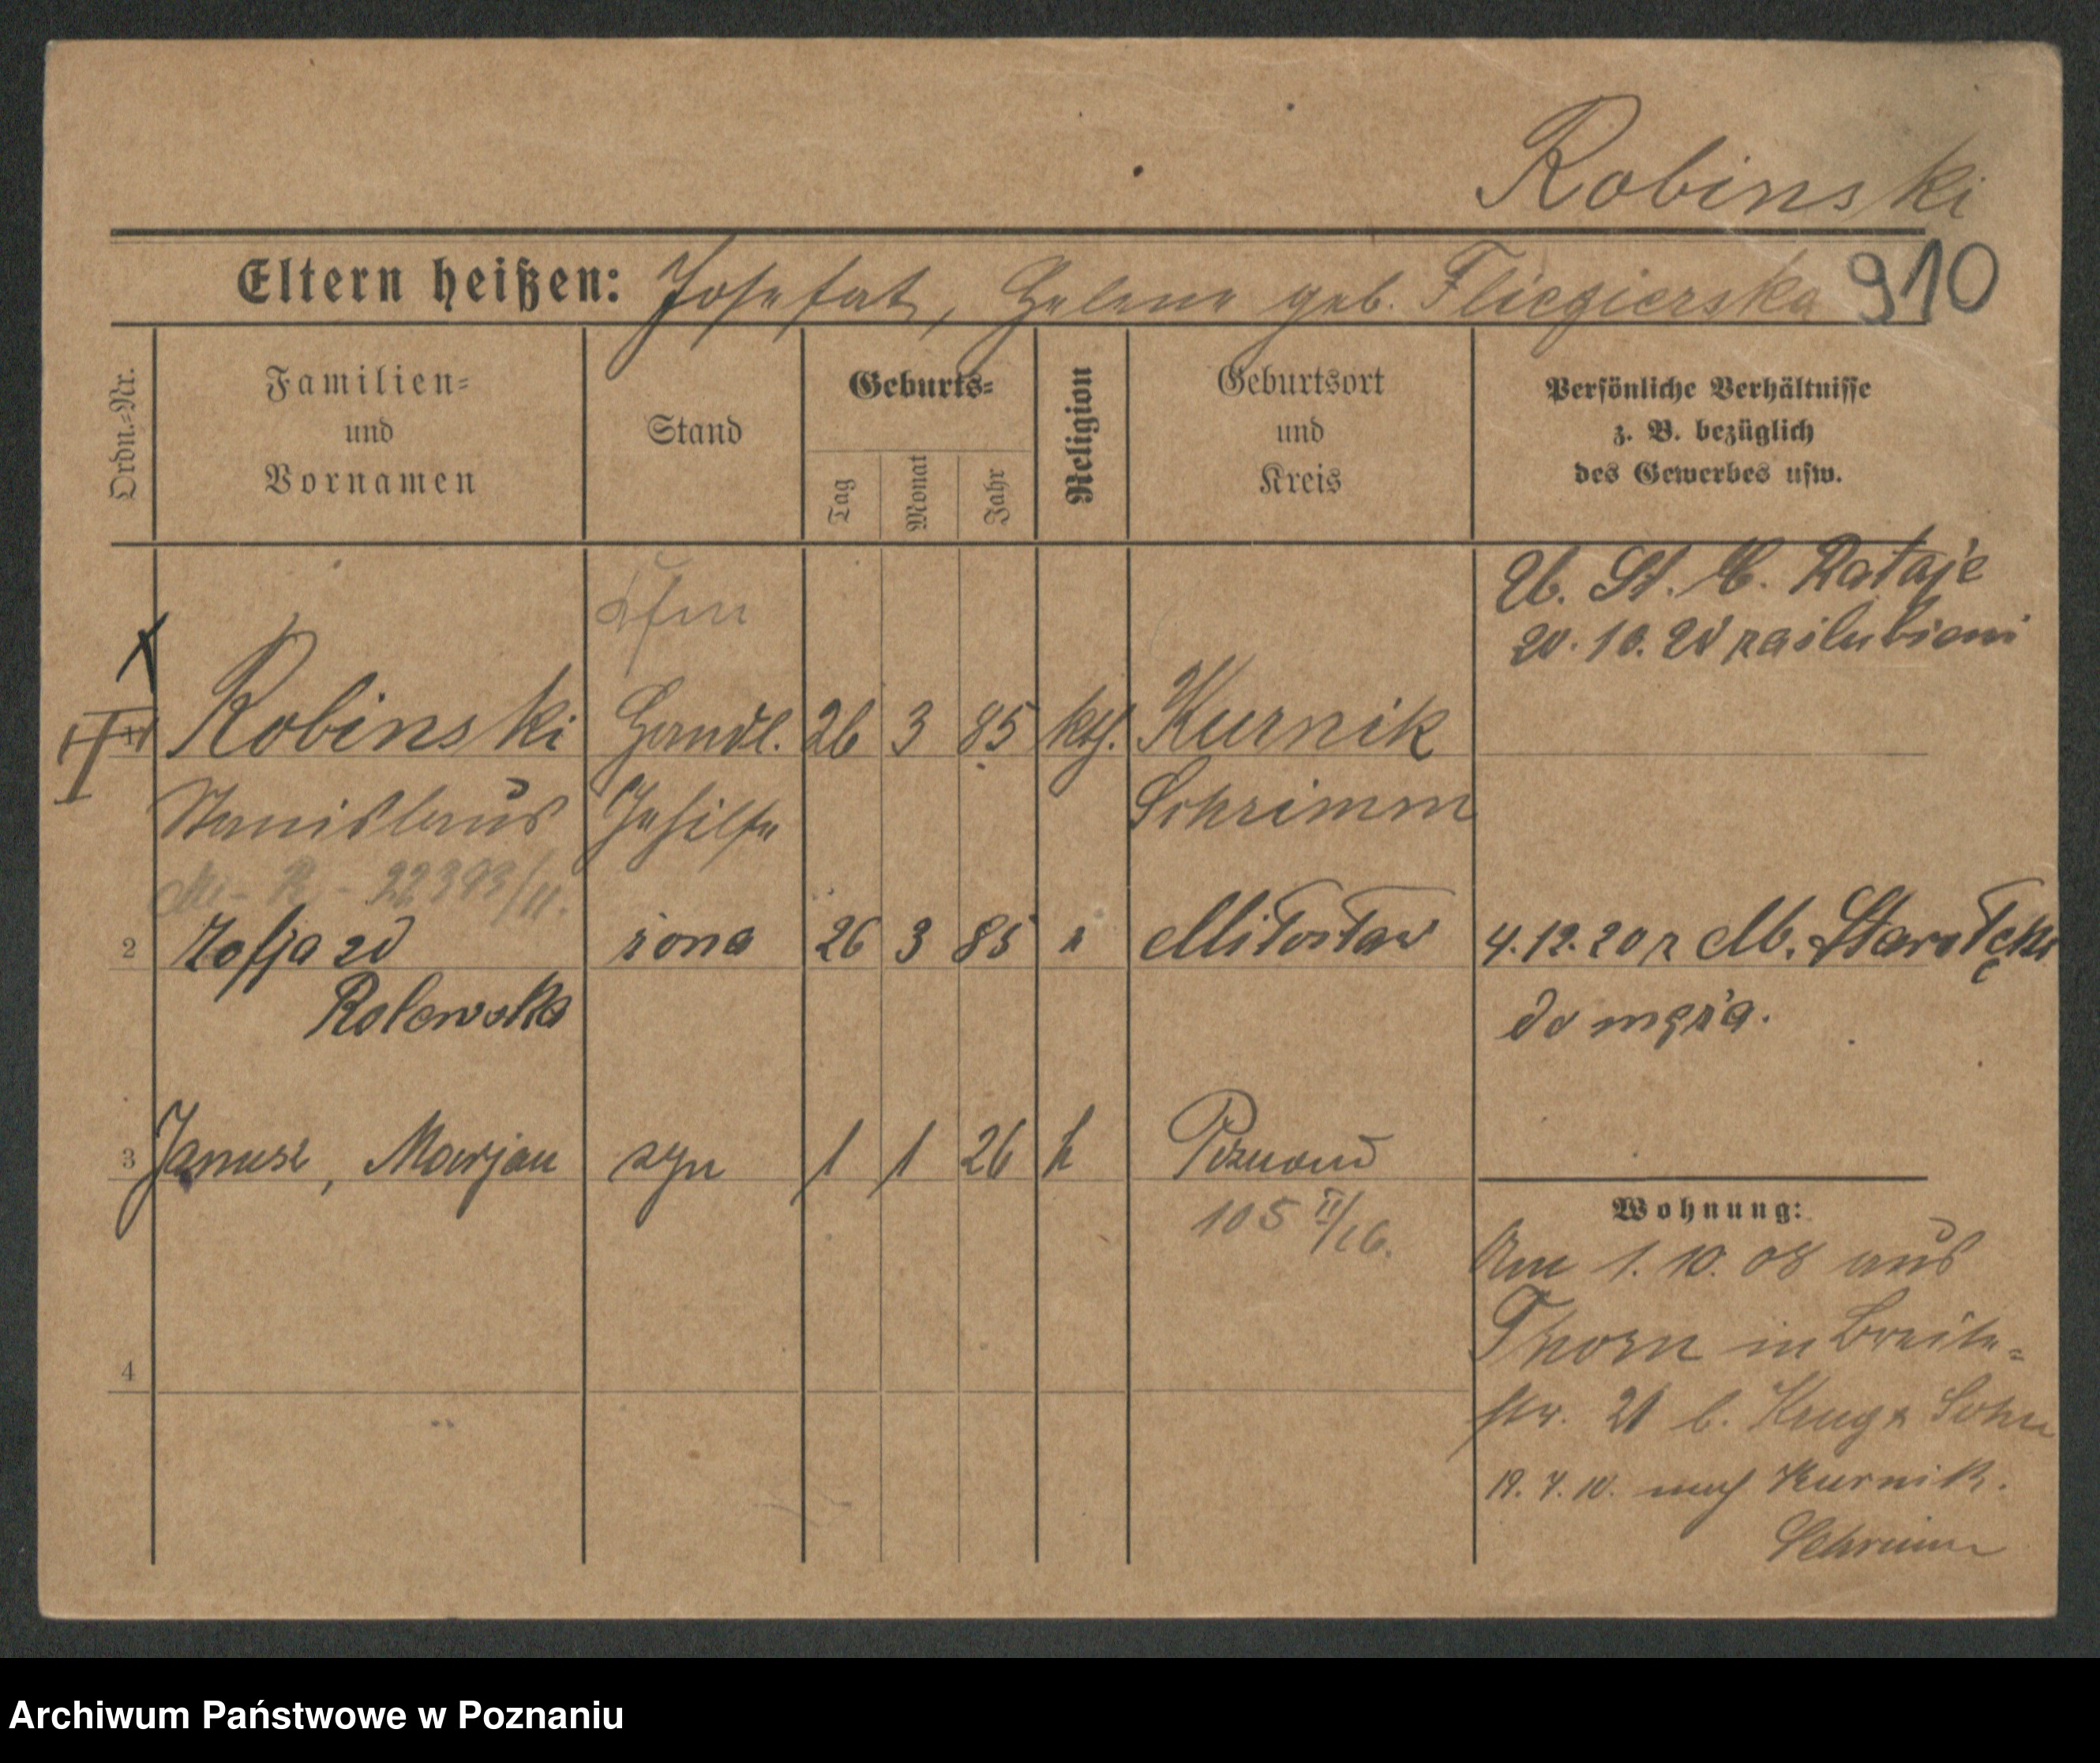 Robinski
Eltern heißen: Josefat, Helene geb. Fliegierska 910
Ordn.-Nr.
Familien-
und
Vornamen
Stand
Geburts-
Tag
Monat
Jahr
Religion
Geburtsort
und
Kreis
Persönliche Verhältnisse
z. B. bezüglich
des Gewerbes usw.
Kfm
U. St. C. Rataje
20. 10. 20 zaślubieni
Robinski Handl. 26 3 85 kth. Kurnik
Stanislaus Gehilfe Schrimm
M - R - 22393/II.
2 Zofja zd żona 26 3 85 " Miłosław 4.12.20 z M. Starołęki
Rolewska do męża.
3 Janusz, Marjan syn 1 1 26 k Poznań
105 II/26.
4
Wohnung:
Am 1. 10. 08 aus
Thorn in Breite-
str. 21 b. Krug & Sohn
19. 4. 10. nach Kurnik.
Schrimm
Archiwum Państwowe w Poznaniu